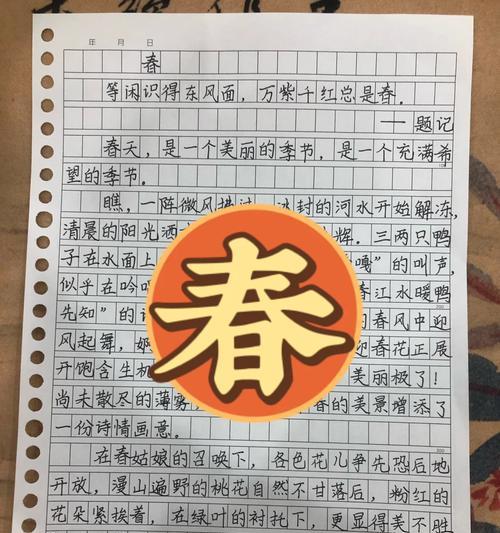 年 月 日
春
等闲识得东风面，万紫千红总是春。
——题记
春天，是一个美丽的季节，是一个充满希
望的季节。
瞧，一阵微风拂过，冰封的河水开始解冻，
清晨的阳光洒 辉。三两只鸭
子在水面上 嘎”的叫声，
似乎在吟 春江水暖鸭
先知”的 春风中迎
风起舞， 迎春花正展
开饱含生机 美丽极了！
尚未散尽的薄雾 春的美景增添了
一份诗情画意。
春
在春姑娘的召唤下，各色花儿争先恐后地
开放，漫山遍野的桃花自然不甘落后，粉红的
花朵紧挨着，在绿叶的衬托下，更显得美不胜